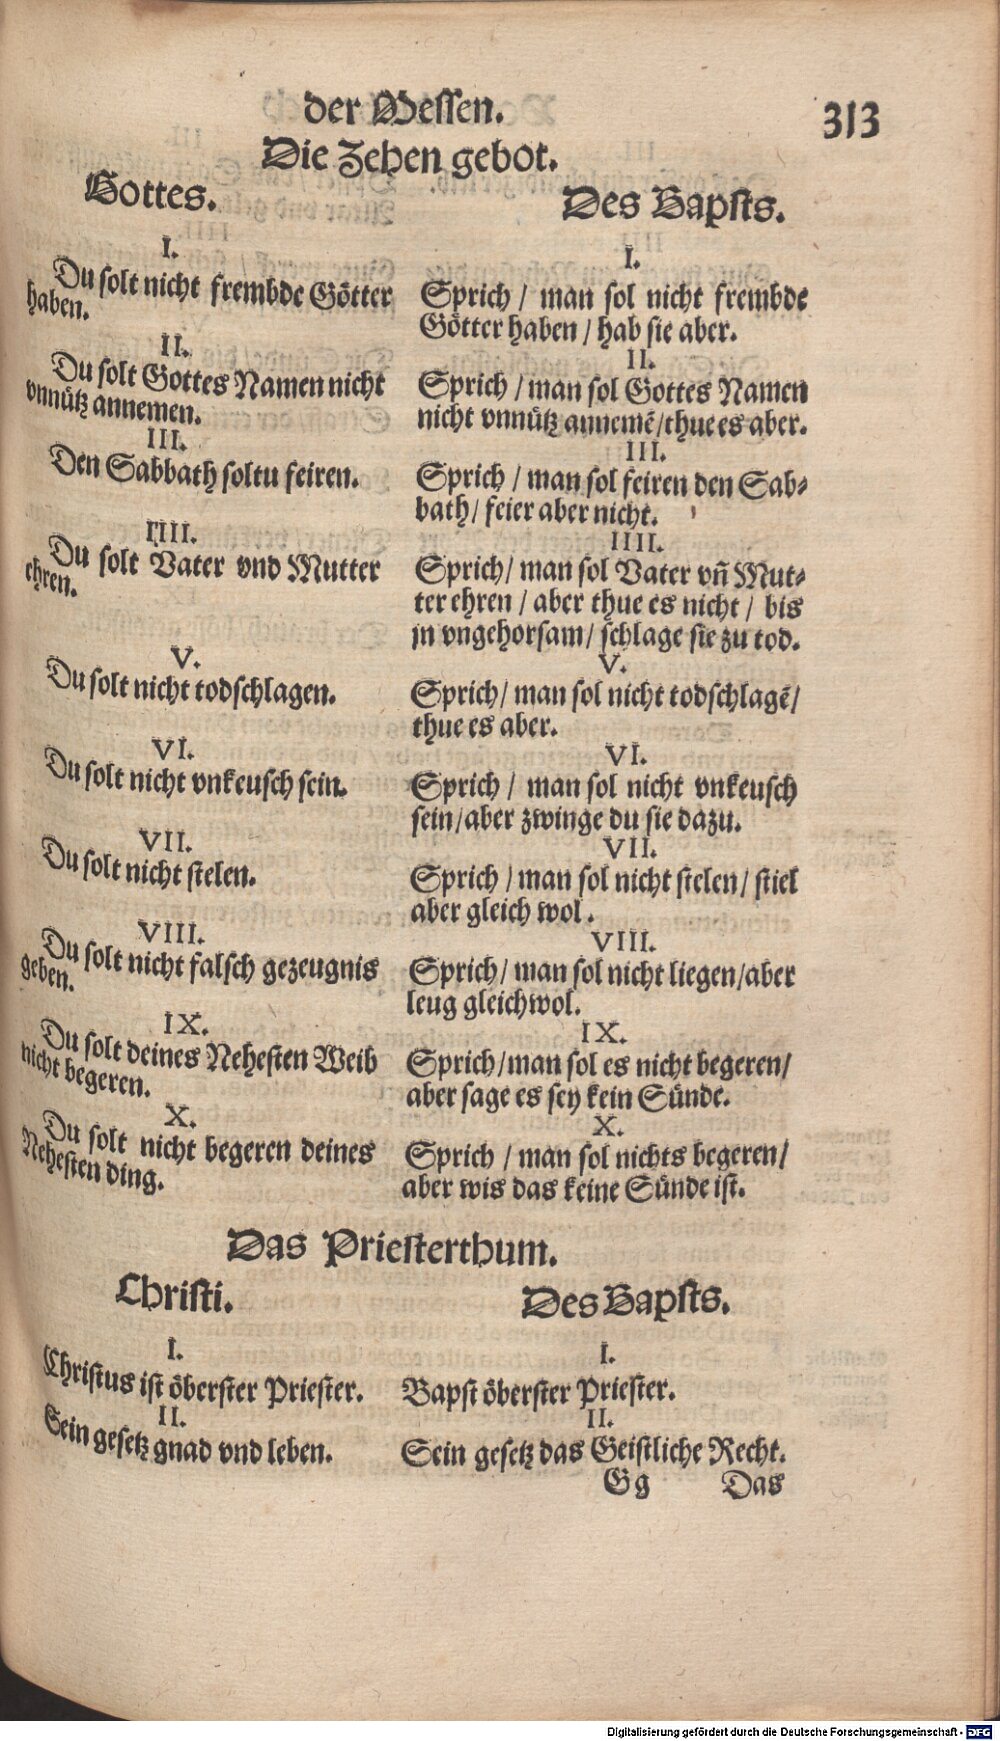 der Messen.
313
Die Zehen gebot.
Gottes.
I.
Du solt nicht frembde Götter
haben.
II.
Du solt Gottes Namen nicht
vnnütz annemen.
III.
Den Sabbath soltu feiren.
IIII.
Du solt Vater vnd Mutter
ehren.
V.
Du solt nicht todschlagen.
VI.
Du solt nicht vnkeusch sein.
VII.
Du solt nicht stelen.
VIII.
Du solt nicht falsch gezeugnis
geben.
IX.
Du solt deines Nehesten Weib
nicht begeren.
X.
Du solt nicht begeren deines
Nehesten ding.
Des Bapsts.
I.
Sprich / man sol nicht frembde
Götter haben / hab sie aber.
II.
Sprich / man sol Gottes Namen
nicht vnnütz annemẽ / thue es aber.
III.
Sprich / man sol feiren den Sab⸗
bath / feier aber nicht.
IIII.
Sprich / man sol Vater vñ Mut⸗
ter ehren / aber thue es nicht / bis
jn vngehorsam / schlage sie zu tod.
V.
Sprich / man sol nicht todschlagẽ /
thue es aber.
VI.
Sprich / man sol nicht vnkeusch
sein / aber zwinge du sie dazu.
VII.
Sprich / man sol nicht stelen / stiel
aber gleich wol.
VIII.
Sprich / man sol nicht liegen / aber
leug gleichwol.
IX.
Sprich / man sol es nicht begeren /
aber sage es sey kein Sünde.
X.
Sprich / man sol nichts begeren /
aber wis das keine Sünde ist.
Das Priesterthum.
Christi.
I.
Christus ist öberster Priester.
II.
Sein gesetz gnad vnd leben.
Des Bapsts.
I.
Bapst öberster Priester.
II.
Sein gesetz das Geistliche Recht.
Gg
Das
Digitalisierung gefördert durch die Deutsche Forschungsgemeinschaft - DFG